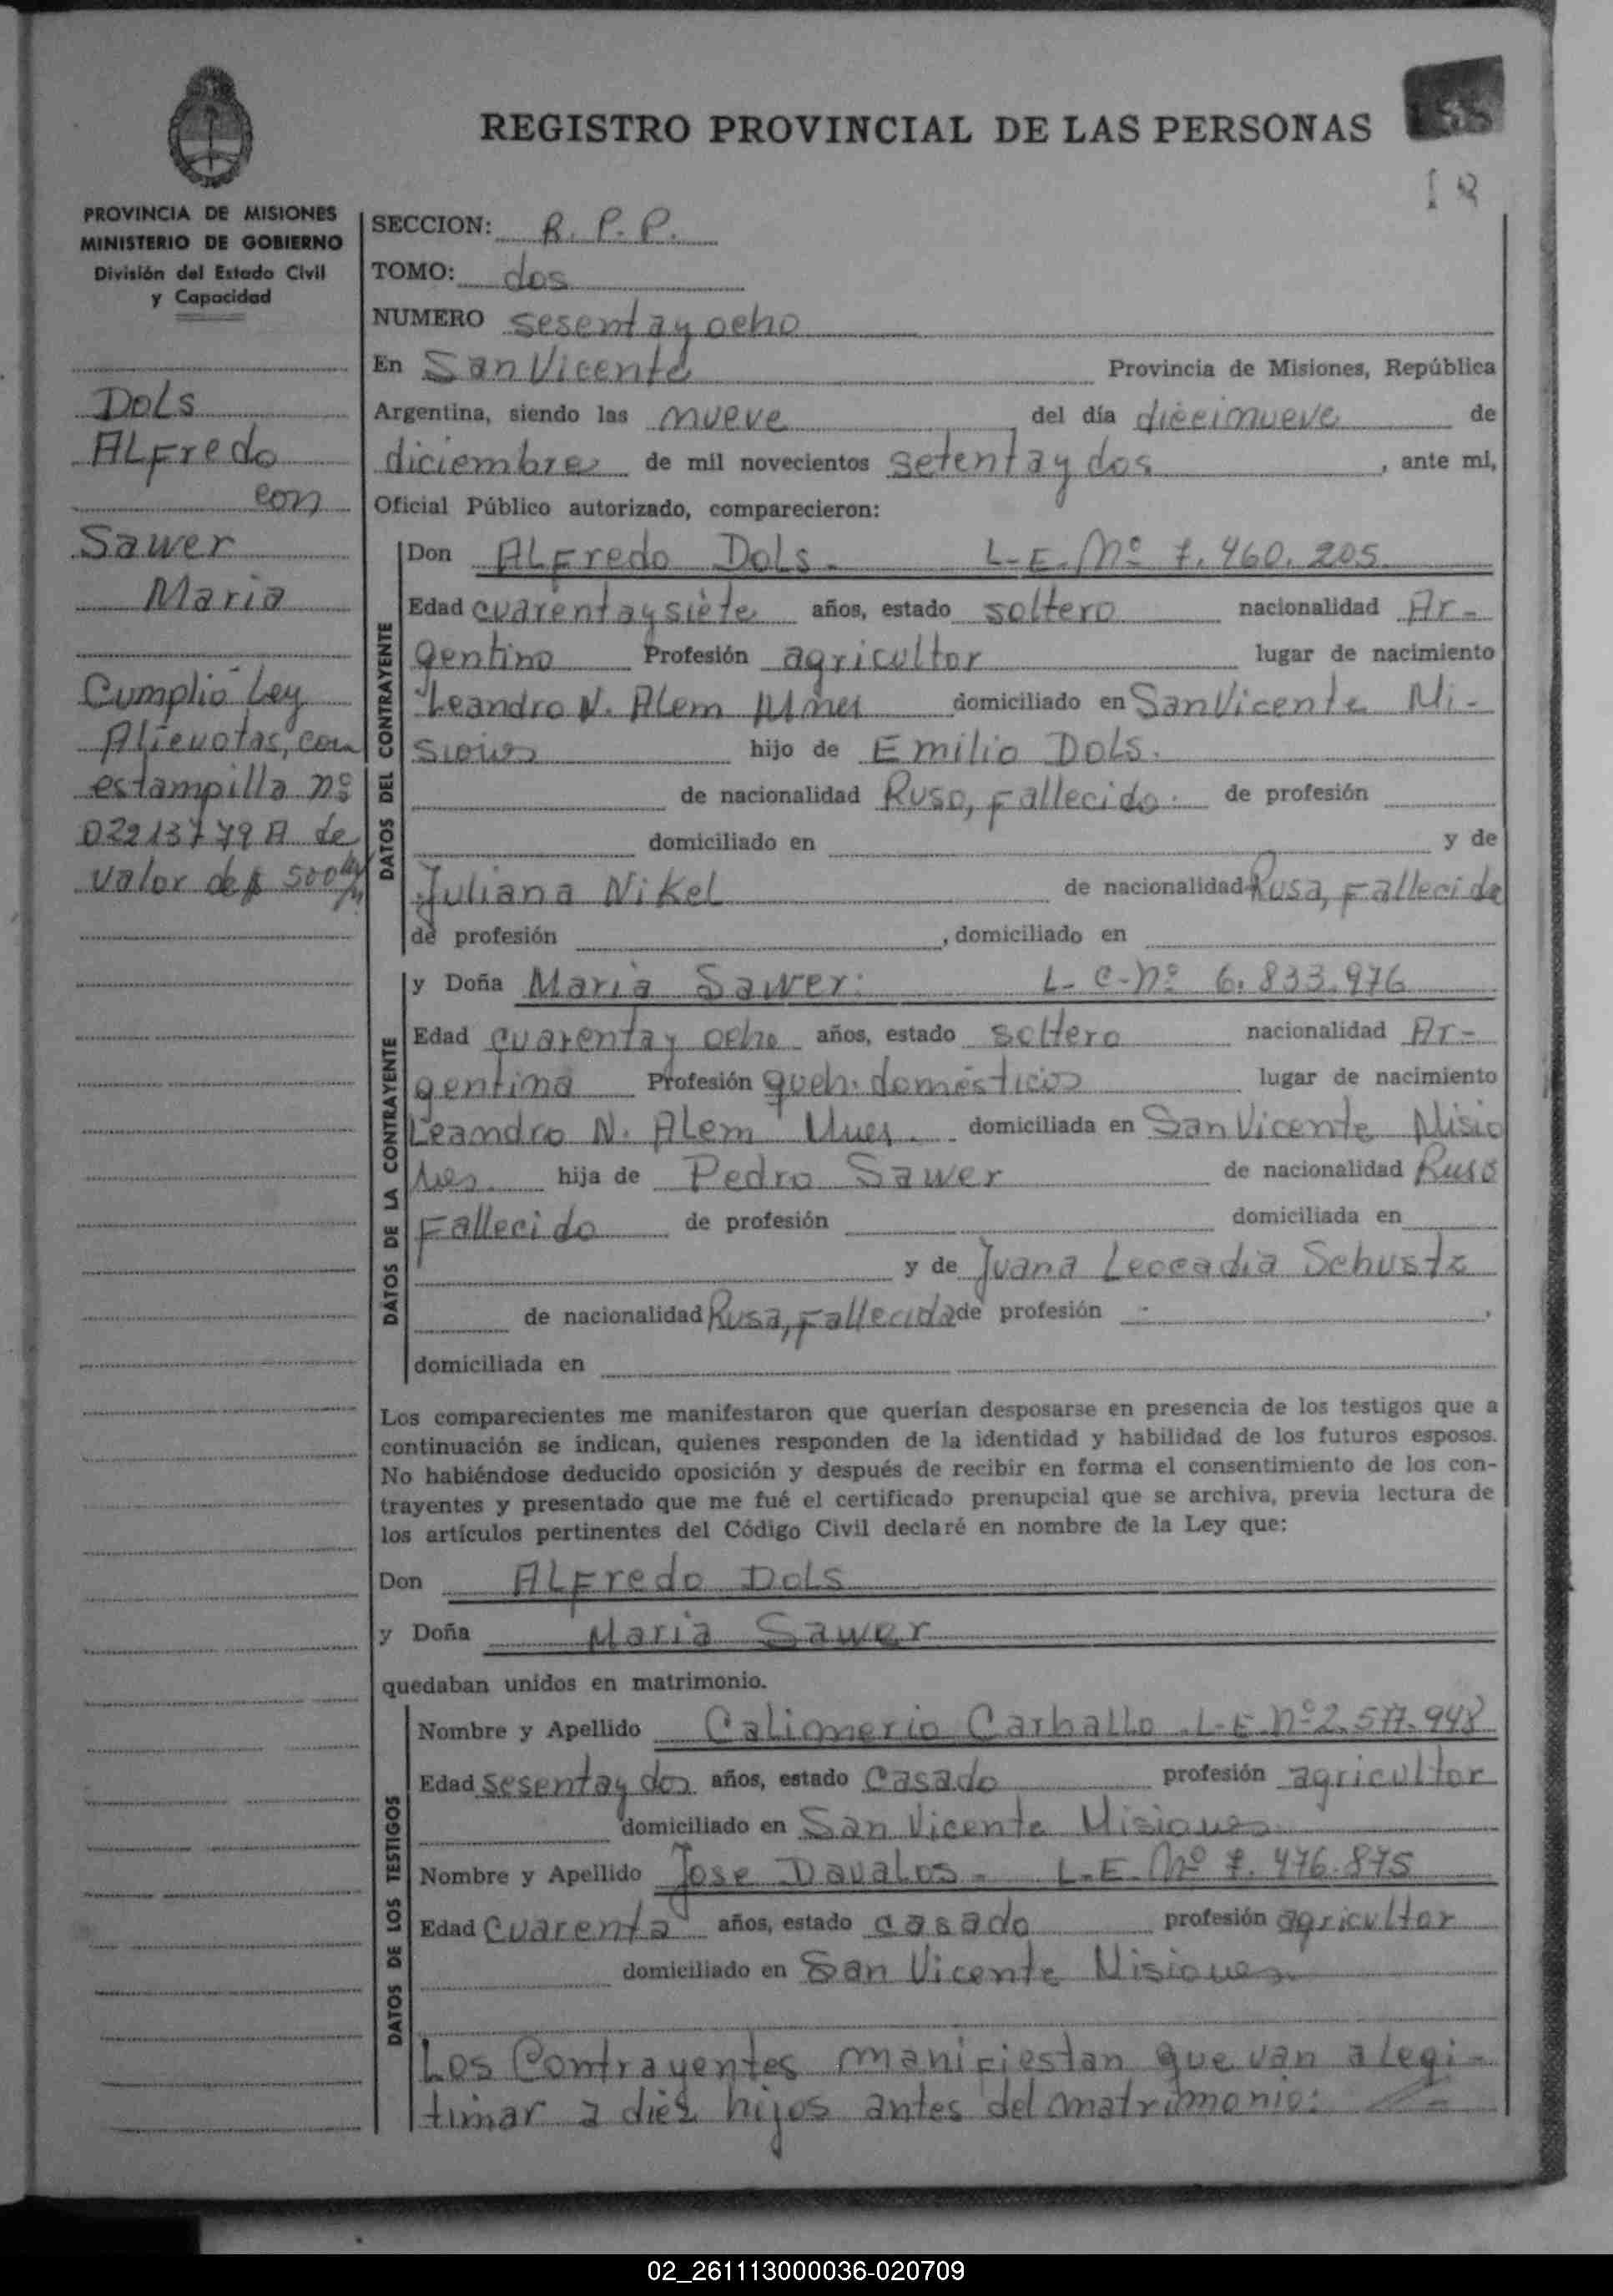 REGISTRO PROVINCIAL DE LAS PERSONAS
PROVINCIA DE MISIONES
MINISTERIO DE GOBIERNO
División del Estado Civil
y Capacidad
Dols
ALFredo
con
Sawer
Maria
Cumplio Ley
con
estampilla nº
02213779 A de
valor de $ 500
SECCION: R. P. P.
TOMO: dos
NUMERO sesenta y ocho
En San Vicente Provincia de Misiones, República
Argentina, siendo las nueve del día diecinueve de
diciembre de mil novecientos setenta y dos, ante mi,
Oficial Público autorizado, comparecieron:
DATOS DEL CONTRAYENTE
Don ALFredo Dols. L-E. Nº 7.460.205
Edad cuarenta y siete años, estado soltero nacionalidad Ar-
gentino Profesión agricultor lugar de nacimiento
Leandro N. Alem Mnes domiciliado en San Vicente Mi-
siones hijo de Emilio DOLS.
de nacionalidad Ruso, Fallecido. de profesión
domiciliado en y de
Juliana Nikel de nacionalidad Rusa, Fallecida
de profesión , domiciliado en
DATOS DE LA CONTRAYENTE
y Doña Maria Sawer. L-C-Nº 6.833.976
Edad cuarenta y ocho años, estado soltero nacionalidad Ar-
gentina Profesión queh. domésticos lugar de nacimiento
Leandro N. Alem Mnes. domiciliada en San Vicente Misio
nes. hija de Pedro Sawer de nacionalidad Ruso
Fallecido de profesión domiciliada en
y de Juana Leocadia Schustz
de nacionalidad Rusa, Fallecida de profesión
domiciliada en
Los comparecientes me manifestaron que querían desposarse en presencia de los testigos que a
continuación se indican, quienes responden de la identidad y habilidad de los futuros esposos.
No habiéndose deducido oposición y después de recibir en forma el consentimiento de los con-
trayentes y presentado que me fué el certificado prenupcial que se archiva, previa lectura de
los artículos pertinentes del Código Civil declaré en nombre de la Ley que:
Don ALFredo DOLS
y Doña Maria Sawer
quedaban unidos en matrimonio.
DATOS DE LOS TESTIGOS
Nombre y Apellido Calimerio Carballo. L-E nº 2.577.948
Edad sesenta y dos años, estado casado profesión agricultor
domiciliado en San Vicente Misiones
Nombre y Apellido Jose Davalos- L-E. Nº 7.476.875
Edad Cuarenta años, estado casado profesión agricultor
domiciliado en San Vicente Misiones
Los Contrayentes maniFiestan que van a legi-
timar a diez hijos antes del matrimonio:
02_261113000036-020709